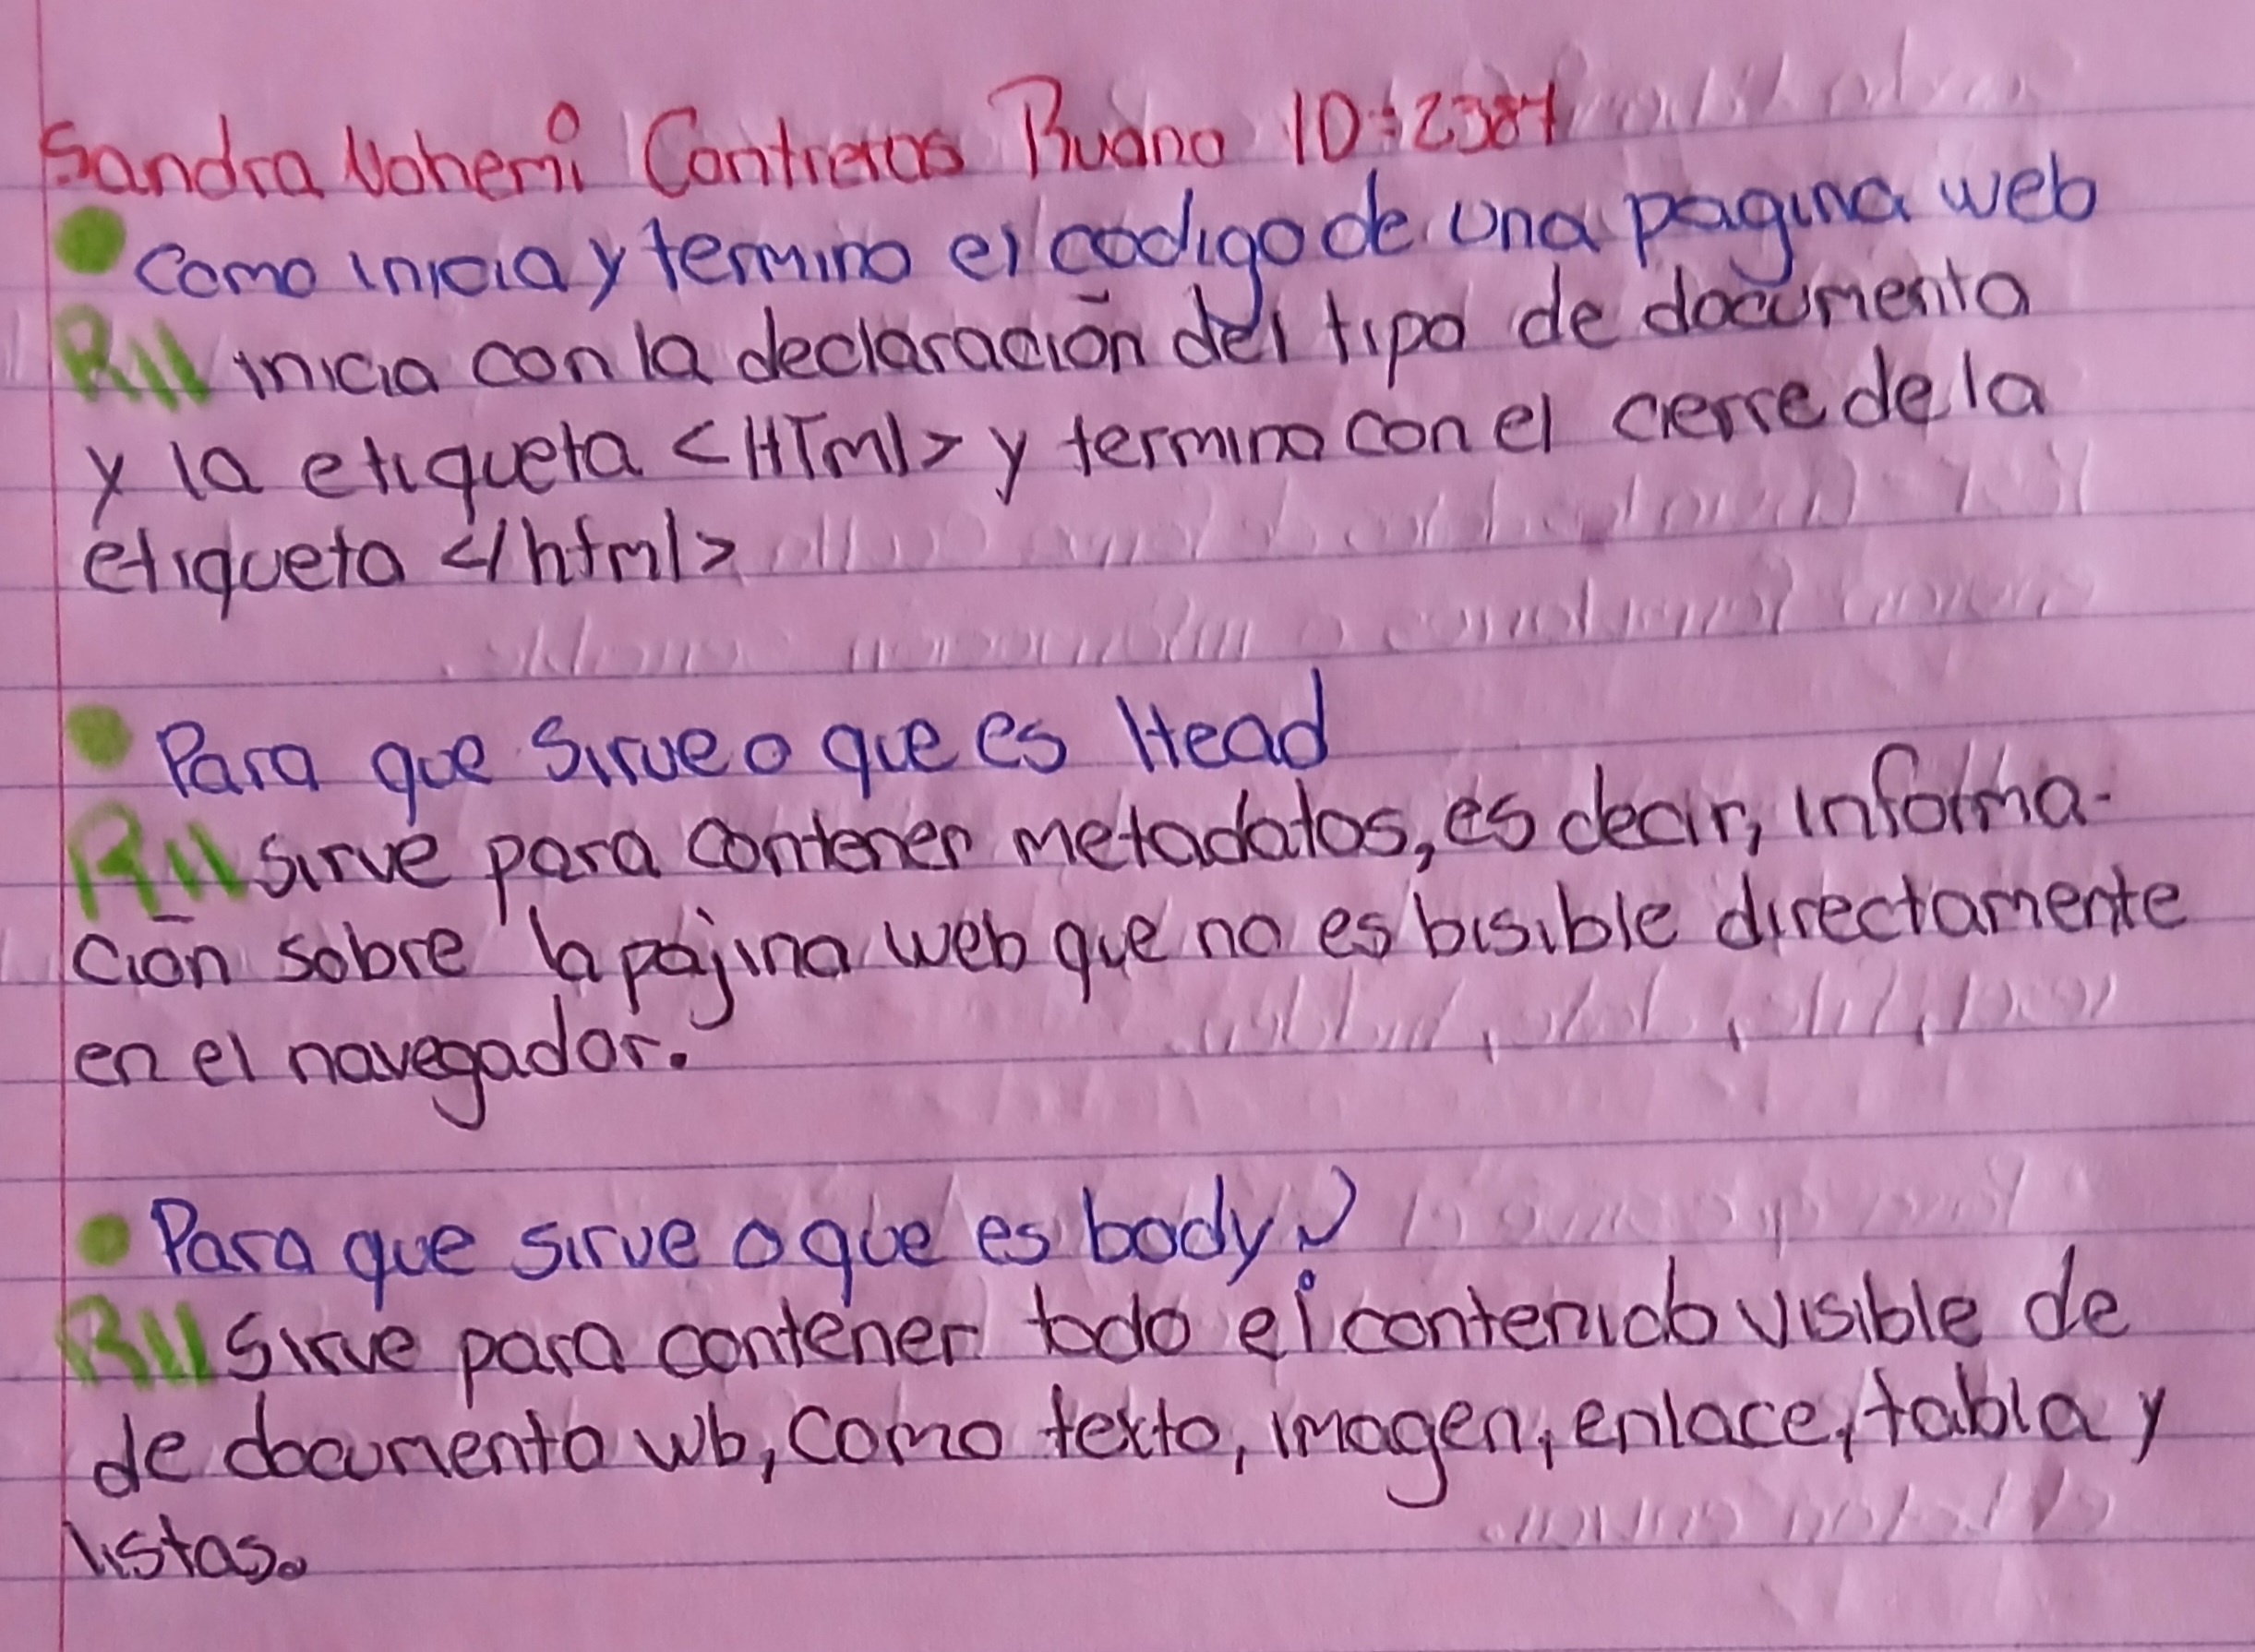 Sandra Nohemi Contreras Ruano ID:2387
Como inicia y termina el codigo de una pagina web
R// inicia con la declaración del tipo de documento
y la etiqueta <HTml> y termina con el cierre de la
etiqueta </html>
Para que sirve o que es Head
R// sirve para contener metadatos, es decir, informa-
ción sobre la pajina web que no es bisible directamente
en el navegador.
Para que sirve o que es body?
R// Sirve para contener todo el contenido visible de
de documento wb, como texto, imagen, enlace, tabla y
listas.